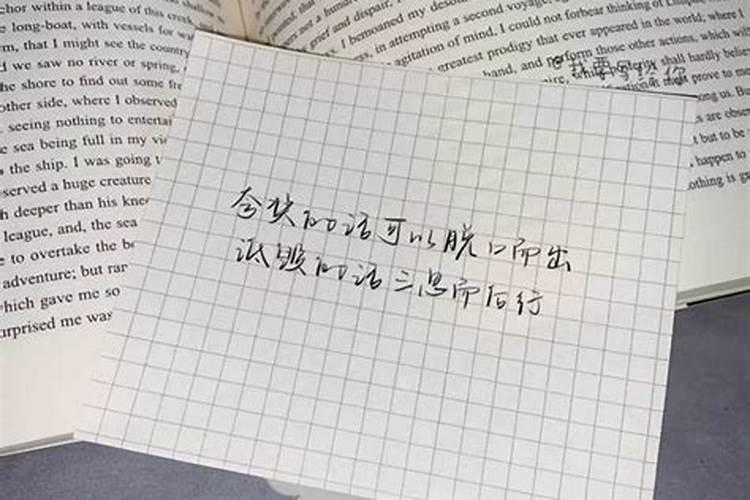 chor within a league of this creek
long-boat, with vessels for
that I might see the country
we saw no river or spring,
the shore to find out some
other side, where I observed
seeing nothing to
sea being full in my
the ship. I was going
served a huge creature
deeper than his
league, and, the sea
to overtake the
adventure; but
which gave me
urprised me was
not a
grief and dispair, I bemoaned my
in attempting a second voyage,
agitation of mind, I could not forbear thinking of
greatest prodigy that ever appeared in the world; where I
hand, and perform those other actions, which
while posterity shall hardly
might prove to
us.
are
but to be
happen to
othing is
我要写给你
夸奖的话可以脱口而出
诋毁的话三思而后行